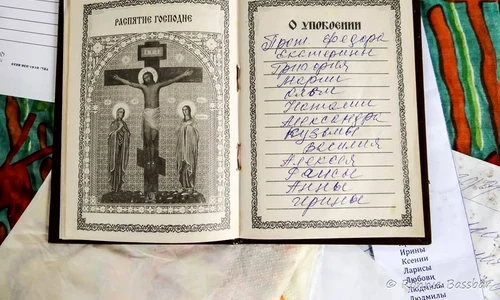 РАСПЯТИЕ ГОСПОДНЕ
О УПОКОЕНИИ
Прот. Федора
Екатерины
Григория
Марии
Ольги
Наталии
Александра
Кузьмы
Василия
Алексея
Раисы
Анны
Ирины
Ирины
Ксении
Ларисы
Любови
Людмилы
Людмилы